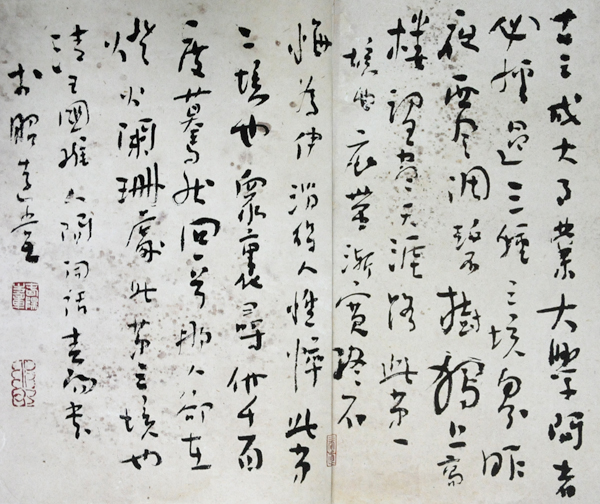 古之成大事業大學问者
必經過三種之境界昨
夜西风凋碧樹獨上高
樓望盡天涯路此第一
境也衣帶漸寬終不
悔為伊消得人憔悴此第
二境也眾裏尋他千百
度驀然回首那人卻在
燈火闌珊處此第三境也
清王國維人间词話 书
于昭 堂